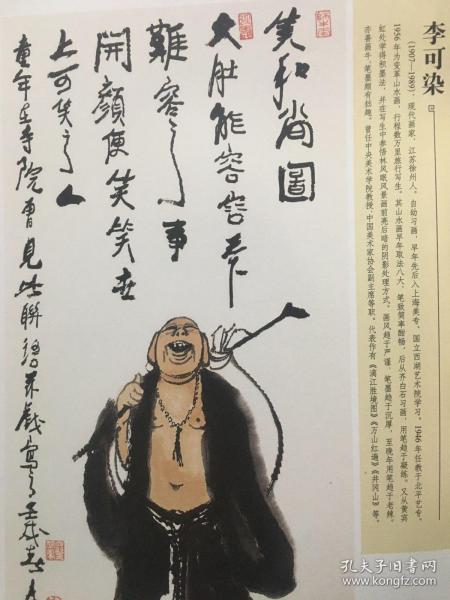 李可染
(1907—1989),现代画家,江苏徐州人。自幼习画,早年先后入上海美专、国立西湖艺术院学习。1946年任教于北平艺专。
1956年为变革山水画,行程数万里旅行写生。其山水画早年取法八大,笔致简率酣畅,后从齐白石习画,用笔趋于凝练。又从黄宾
虹处学得积墨法,并在写生中参悟林风眠风景画前亮后暗的阴影处理方式。画风趋于严谨,笔墨趋于沉厚,至晚年用笔趋于老辣。
亦善画牛,笔墨颇有拙趣。曾任中央美术学院教授、中国美术家协会副主席等职。代表作有《漓江胜境图》《万山红遍》《井冈山》等。
笑和尚图
大肚能容容天下
难容之事
开颜便笑笑世
上可笑之人
童年在寺院曾见此联
孔夫子旧书网
www.kongfz.com